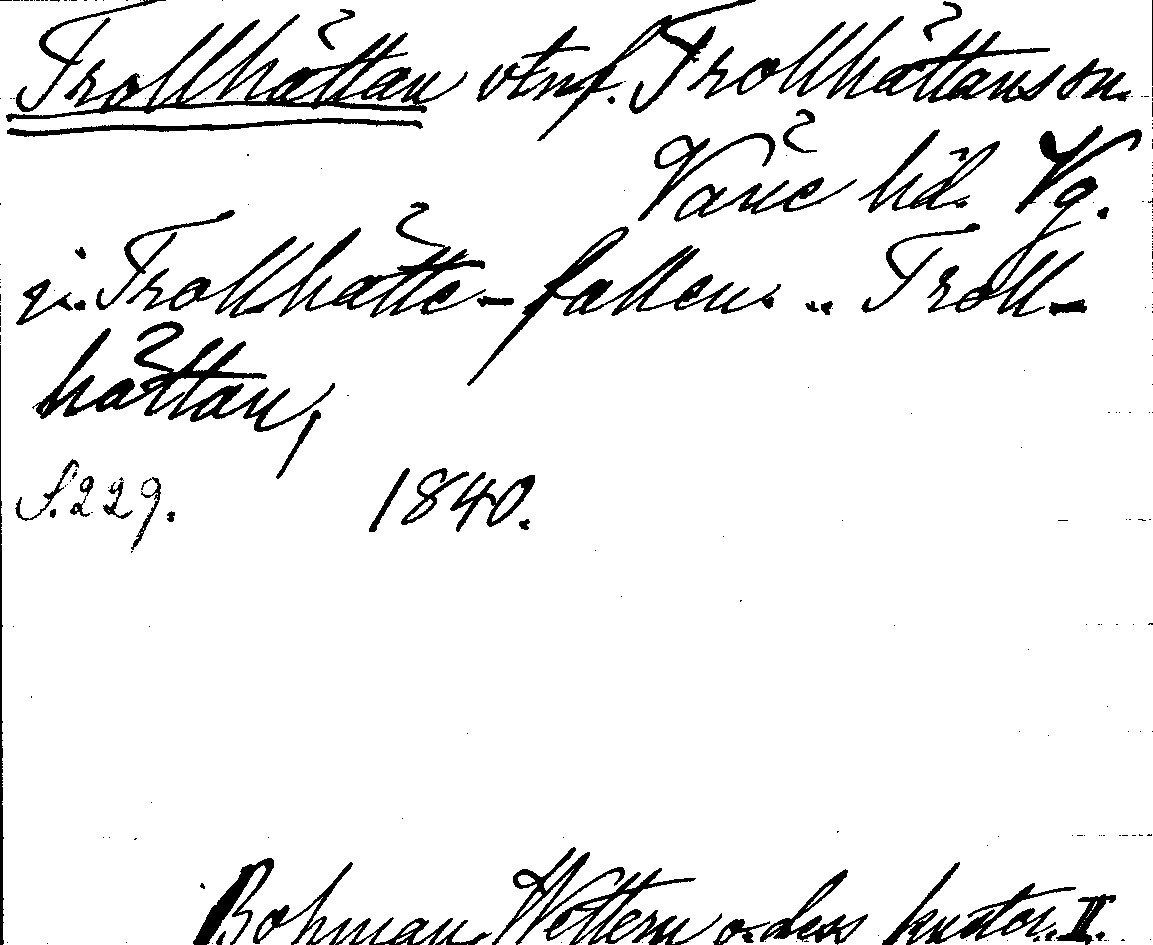 Trollhättan vtnf. Trollhättans sn.
Väne hd. Vg.
Trollhätte-fallen. .. Troll-
hättan,
S. 229. 1840.
Bohman, Wettern o. dess kuster. II.